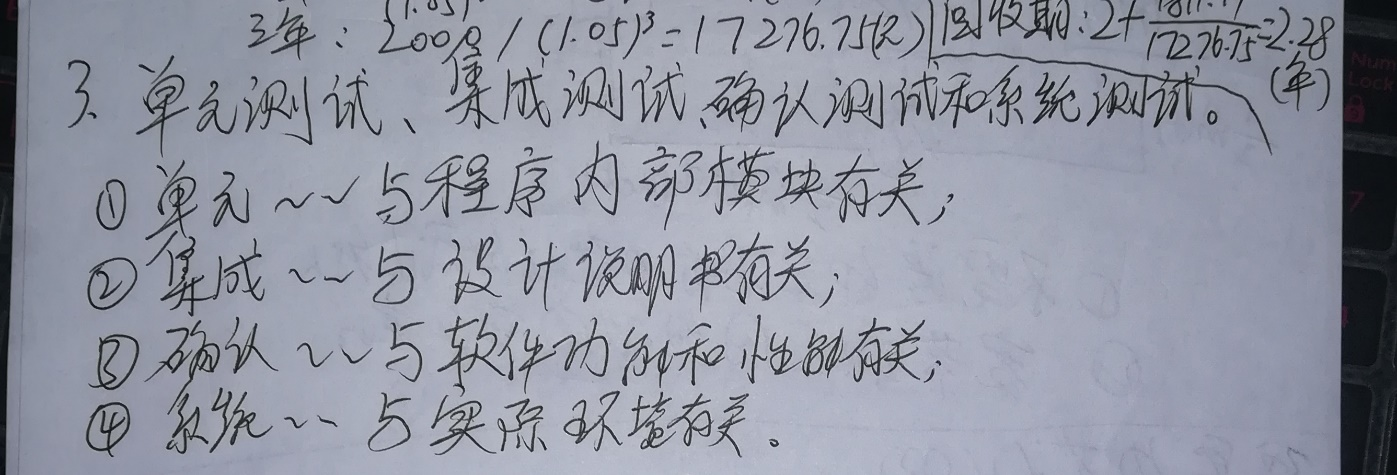 三年: 20000/(1.05)³=17276.75(元) 回收期:2+ /17276.75=2.28(年)
3. 单元测试、集成测试、确认测试和系统测试。
① 单元~~与程序内部模块有关;
② 集成~~与设计说明书有关;
③ 确认~~与软件功能和性能有关;
④ 系统~~与实际环境有关。